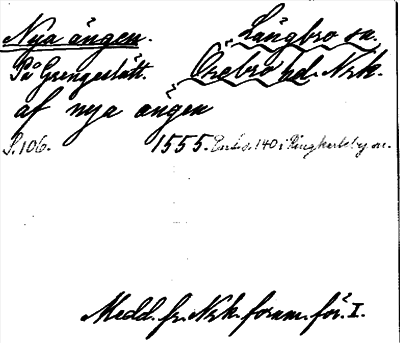 Nya ängen. Längbro sn.
På Grengeslätt. Örebro hd. Nrk.
af nya ängen
S. 106. 1555. Enl. s. 140 i Ringkarleby sn.
Medd. fr. Nrk. fornm. för. I.